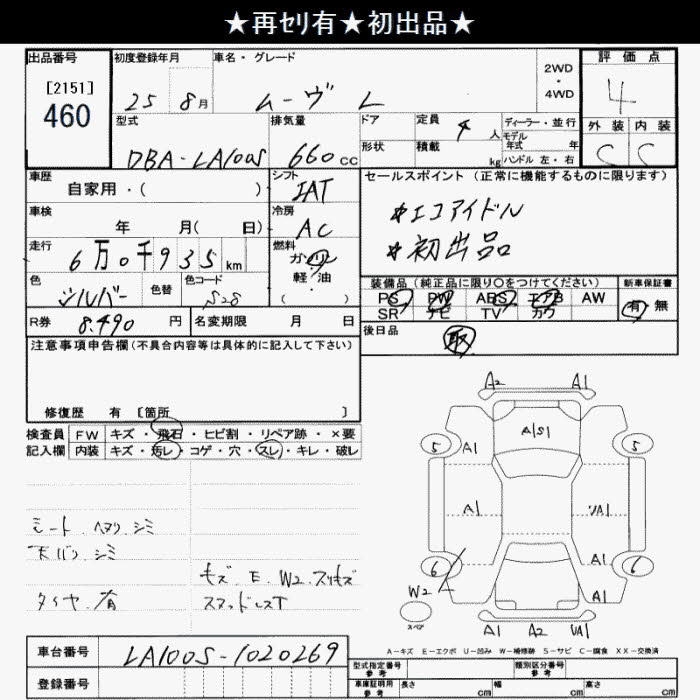 ★再ｾﾘ有★初出品★
出品番号
[2151]
460
初度登録年月
25 8月
車名・グレード
ムーヴ L
2WD
・
4WD
評価点
4
外装 内装
C C
型式
DBA-LA100S
排気量
660 CC
ドア
形状
定員 4 人
積載 kg
ディーラー・並行
モデル
年式 年
ハンドル 左・右
車歴
自家用・( )
シフト
IAT
セールスポイント (正常に機能するものに限ります)
*エコアイドル
*初出品
車検
年 月( 日)
冷房
AC
走行
6万0千935km
燃料
ガソリン
軽・油
( )
色
シルバー
色替
色コード
S28
装備品(純正品に限り○をつけてください)
PS PW ABS エアB AW
SR ナビ TV カワ
新車保証書
有・無
R券 8.490 円
名変期限 月 日
後日品
取
注意事項申告欄(不具合内容等は具体的に記入して下さい)
修復歴 有 [箇所 ]
検査員 FW キズ・飛石・ヒビ割・リペア跡・×要
記入欄 内装 キズ・汚レ・コゲ・穴・スレ・キレ・破レ
シート ヘタリ シミ
天バリ シミ
タイヤ 有
キズ. E. W2. スリキズ
A2 A1
A1S1
5 A1 5
A1 UA1
A1
6 6
W2
スペア
A1 A2 UA1
A－キズ E－エクボ U－凹み W－補修跡 S－サビ C－腐食 XX－交換済
車台番号 LA100S-1020269
登録番号
型式指定番号
参考
類別区分番号
参考
車庫証明用
参考
長さ cm 幅 cm 高さ cm